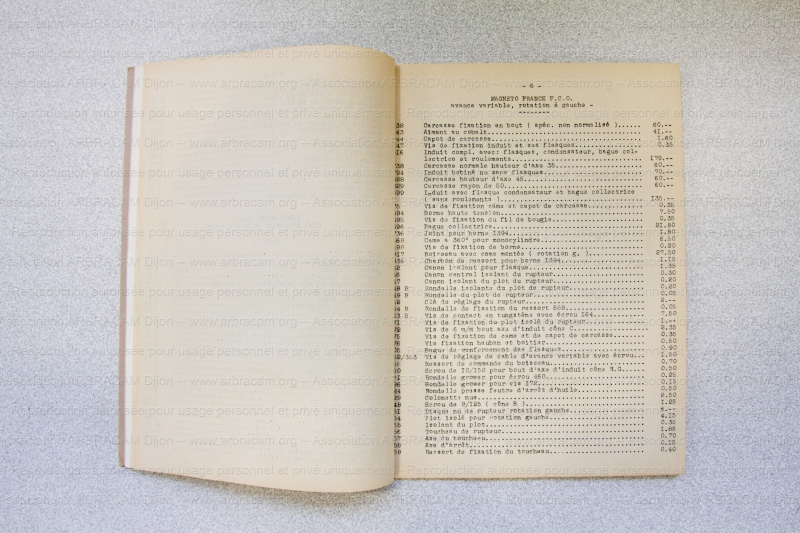 - 6 -
MAGNETO FRANCE F.C.O.
avance variable, rotation à gauche -
38 Carcasse fixation en bout ( spéc. non normalisé )...... 60.--
43 Aimant au cobalt.............. 41.--
44 Capot de carcasse.............. 1.60
47 Vis de fixation induit et aux flasques.............. 0.35
16 Induit compl. avec: flasques, condensateur, bague col-
lectrice et roulements.............. 179.--
738 Carcasse normale hauteur d'axe 35.............. 60.--
794 Induit bobiné nu sans flasques.............. 70.--
828 Carcasse hauteur d'axe 45.............. 60.--
829 Carcasse rayon de 50.............. 60.--
Induit avec flasque condensateur et bague collectrice
( sans roulements ).............. 135.--
Vis de fixation câme et capot de carcasse.............. 0.35
Borne haute tension.............. 7.50
Vis de fixation du fil de bougie.............. 0.35
Bague collectrice.............. 21.80
Joint pour borne 1394.............. 1.80
Came à 360° pour monocylindre.............. 6.50
Vis de fixation de borne.............. 0.20
Boisseau avec came montée ( rotation g. ).............. 27.50
Charbon de ressort pour borne 1394.............. 1.15
Canon isolant pour flasque.............. 1.35
Canon central isolant du rupteur.............. 0.30
Canon isolant du plot du rupteur.............. 0.20
B Rondelle isolante du plot de rupteur.............. 0.20
B Rondelle du plot de rupteur.............. 0.05
Clé de réglage du rupteur.............. 2.--
B Rondelle de fixation du ressort 559.............. 0.05
B Vis de contact en tungstène avec écrou 164.............. 7.50
Vis de fixation de plot isolé du rupteur.............. 1.--
Vis de 6 m/m bout axe d'induit cône C.............. 2.35
Vis de fixation de came et de capot de carcasse.............. 0.35
Vis fixation hauban et boitier.............. 0.50
Bague de renforcement des flasques.............. 0.90
Vis de réglage de cable d'avance variable avec écrou.... 1.50
Ressort de commande du boisseau.............. 0.70
Ecrou de 10/150 pour bout d'axe d'induit cône R.G....... 0.50
Rondelle grower pour écrou 460.............. 0.25
Rondelle grower pour vis 172.............. 0.15
Rondelle presse feutre d'arrêt d'huile.............. 0.50
Colonette nue.............. 2.50
Ecrou de 9/125 ( cône B ).............. 1.25
Disque nu de rupteur rotation gauche.............. 6.--
Plot isolé pour rotation gauche.............. 4.15
Isolant du plot.............. 0.35
Toucheau de rupteur.............. 1.65
Axe du toucheau.............. 0.70
Axe d'arrêt.............. 0.15
Ressort de fixation du toucheau.............. 0.40